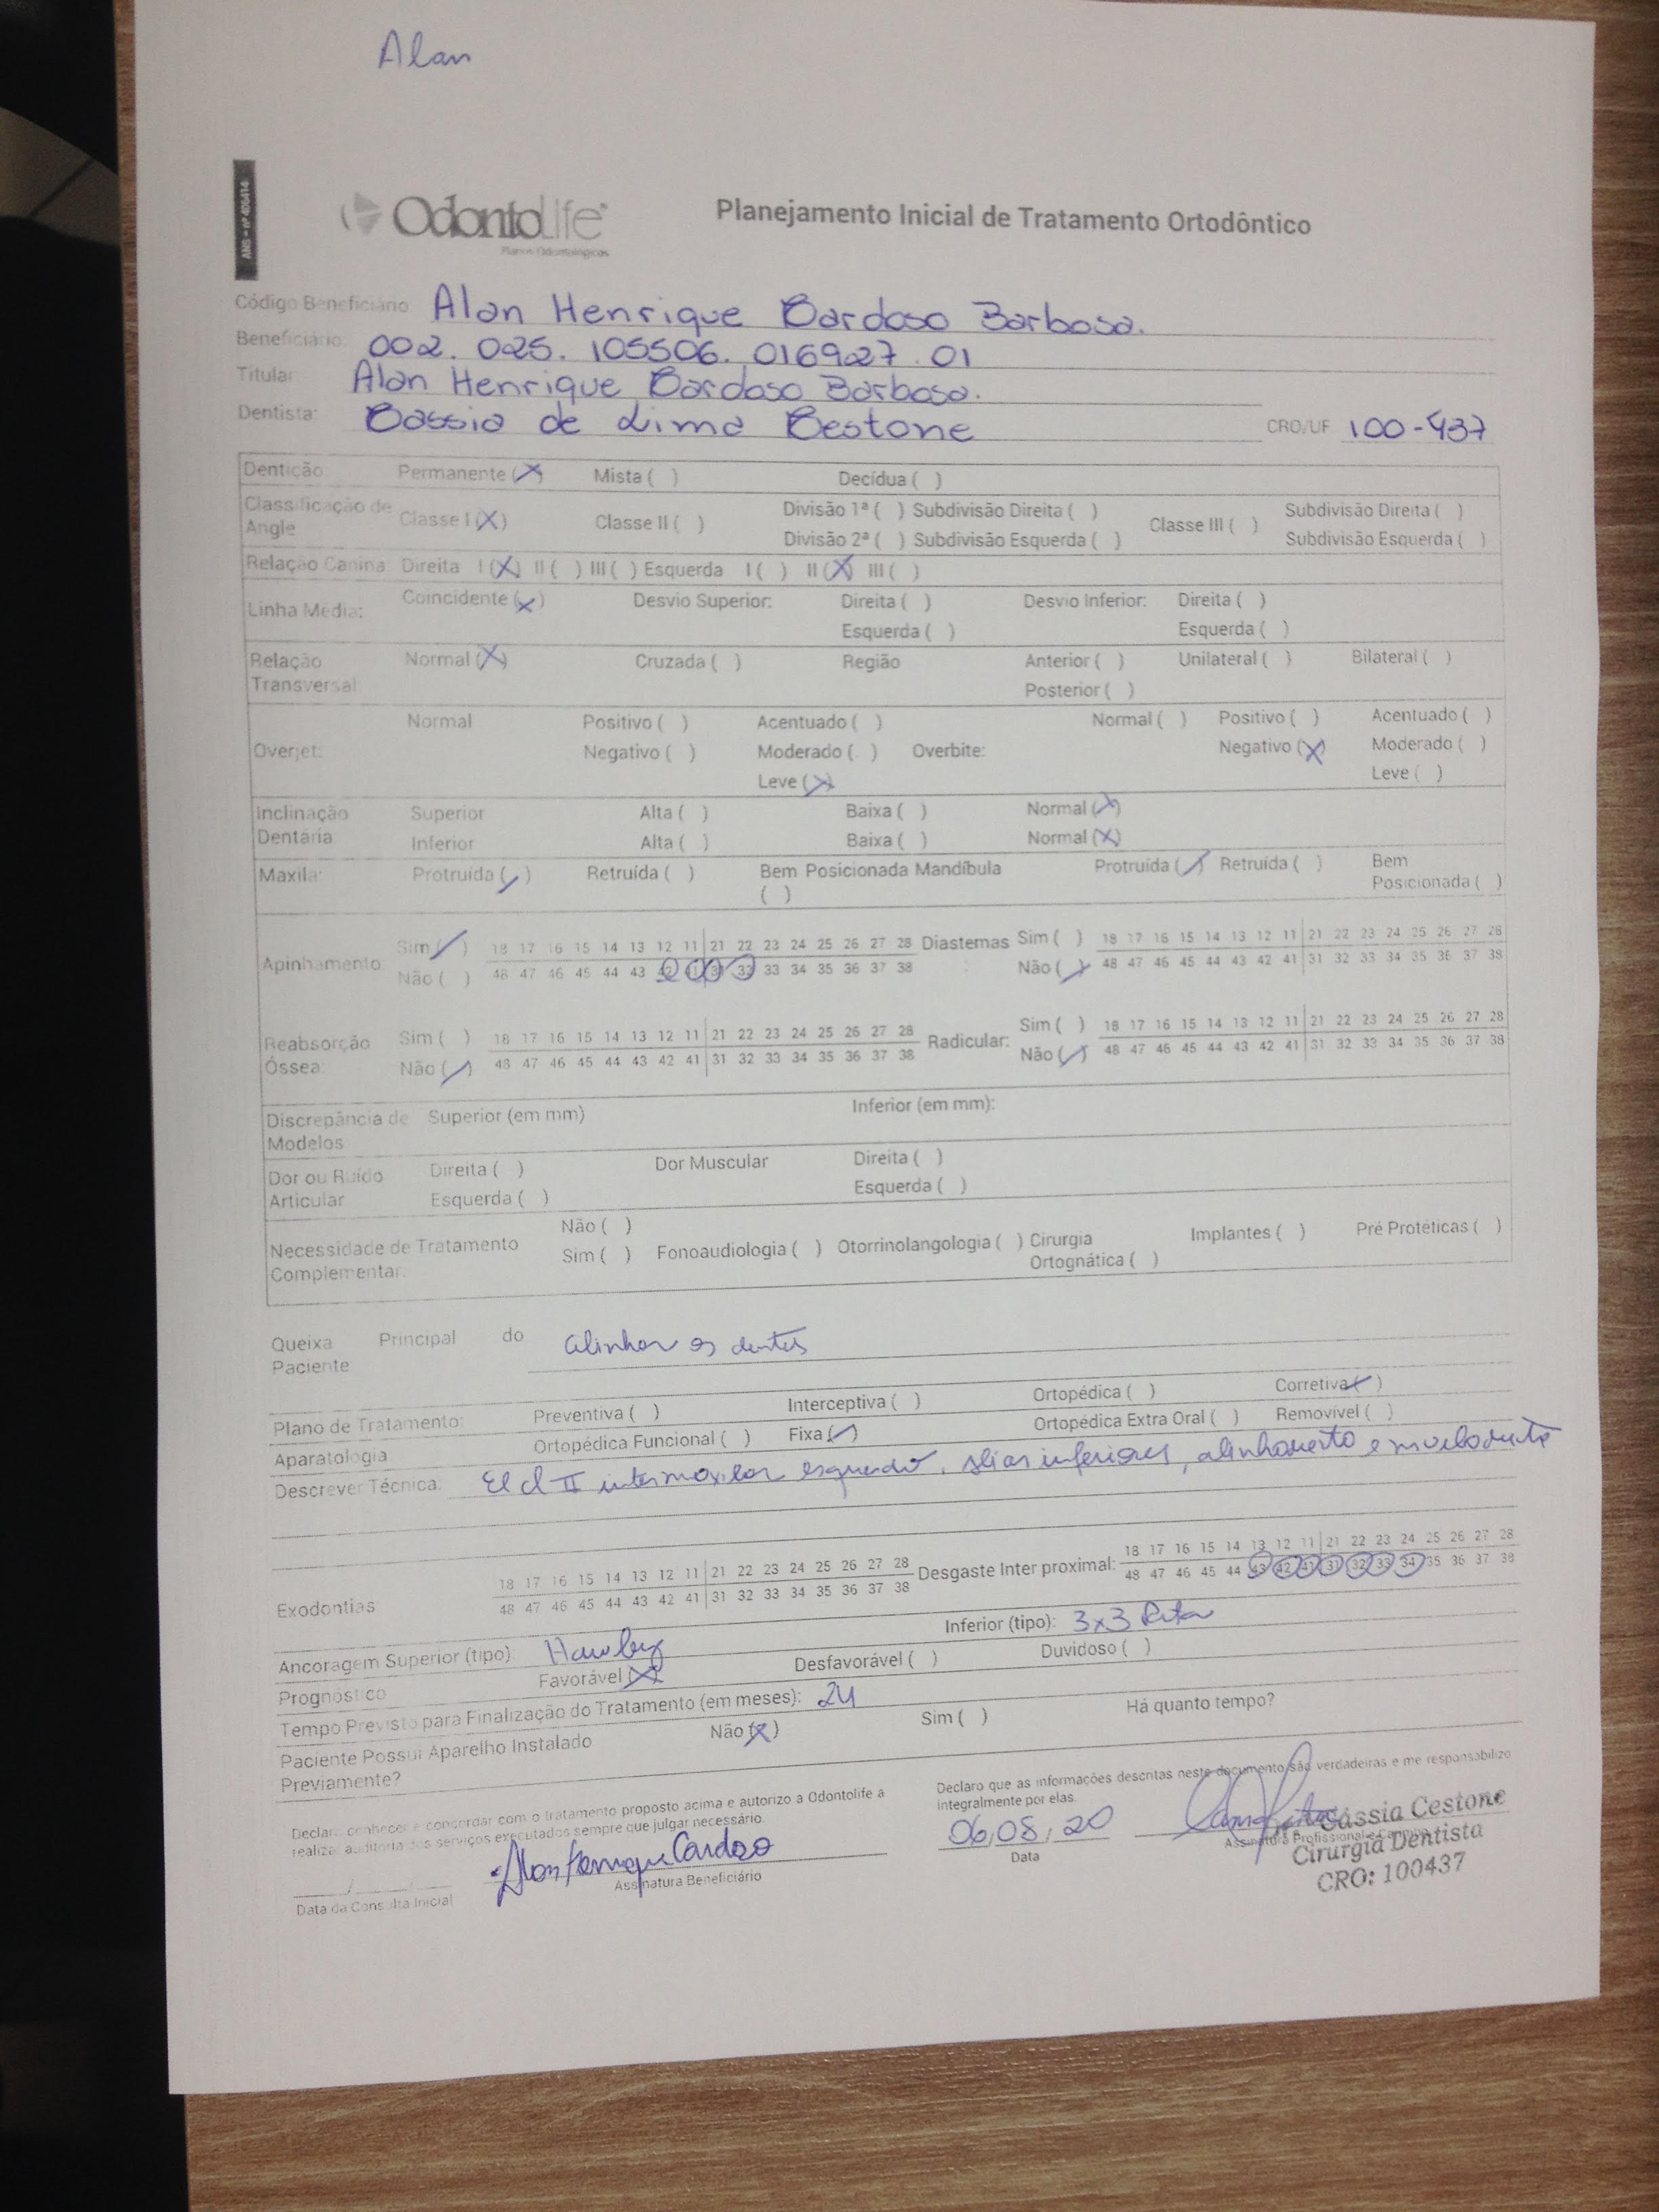 Alan
ANS - nº 406414
OdontoLife
Planos Odontológicos
Planejamento Inicial de Tratamento Ortodôntico
Código Beneficiário Alan Henrique Cardoso Barbosa.
Beneficiário: 002. 025. 105506. 016927. 01
Titular Alan Henrique Cardoso Barbosa.
Dentista: Cassia de Lima Cestone CRO/UF 100-437
Dentição Permanente (X) Mista ( ) Decídua ( )
Classificação de Angle Classe I (X) Classe II ( ) Divisão 1ª ( ) Subdivisão Direita ( ) Classe III ( ) Subdivisão Direita ( )
Divisão 2ª ( ) Subdivisão Esquerda ( ) Subdivisão Esquerda ( )
Relação Canina Direita I (X) II ( ) III ( ) Esquerda I ( ) II (X) III ( )
Linha Média: Coincidente (X) Desvio Superior: Direita ( ) Desvio Inferior: Direita ( )
Esquerda ( ) Esquerda ( )
Relação Transversal Normal (X) Cruzada ( ) Região Anterior ( ) Unilateral ( ) Bilateral ( )
Posterior ( )
Normal Positivo ( ) Acentuado ( ) Normal ( ) Positivo ( ) Acentuado ( )
Overjet: Negativo ( ) Moderado ( ) Overbite: Negativo (X) Moderado ( )
Leve (X) Leve ( )
Inclinação Dentária Superior Alta ( ) Baixa ( ) Normal (X)
Inferior Alta ( ) Baixa ( ) Normal (X)
Maxila: Protruída (/) Retruída ( ) Bem Posicionada Mandíbula Protruída (/) Retruída ( ) Bem
( ) Posicionada ( )
Apinhamento Sim (/) 18 17 16 15 14 13 12 11 21 22 23 24 25 26 27 28 Diastemas Sim ( ) 18 17 16 15 14 13 12 11 21 22 23 24 25 26 27 28
Não ( ) 48 47 46 45 44 43 42 41 31 32 33 34 35 36 37 38 Não (/) 48 47 46 45 44 43 42 41 31 32 33 34 35 36 37 38
Reabsorção Óssea: Sim ( ) 18 17 16 15 14 13 12 11 21 22 23 24 25 26 27 28 Radicular: Sim ( ) 18 17 16 15 14 13 12 11 21 22 23 24 25 26 27 28
Não (/) 48 47 46 45 44 43 42 41 31 32 33 34 35 36 37 38 Não (/) 48 47 46 45 44 43 42 41 31 32 33 34 35 36 37 38
Discrepância de Modelos Superior (em mm) Inferior (em mm):
Dor ou Ruído Articular Direita ( ) Dor Muscular Direita ( )
Esquerda ( ) Esquerda ( )
Não ( )
Necessidade de Tratamento Complementar: Sim ( ) Fonoaudiologia ( ) Otorrinolangologia ( ) Cirurgia Ortognática ( ) Implantes ( ) Pré Protéticas ( )
Queixa Principal do Paciente alinhar os dentes
Plano de Tratamento: Preventiva ( ) Interceptiva ( ) Ortopédica ( ) Corretiva (/)
Aparatologia Ortopédica Funcional ( ) Fixa (/) Ortopédica Extra Oral ( ) Removível ( )
Descrever Técnica: El cl II intermaxilar esquerdo, slias inferiores, alinhamento e nivelamento
18 17 16 15 14 13 12 11 21 22 23 24 25 26 27 28 Desgaste Inter proximal: 18 17 16 15 14 13 12 11 21 22 23 24 25 26 27 28
Exodontias 48 47 46 45 44 43 42 41 31 32 33 34 35 36 37 38 48 47 46 45 44 43 42 41 31 32 33 34 35 36 37 38
Ancoragem Superior (tipo): Hawley Inferior (tipo): 3x3
Prognóstico Favorável (X) Desfavorável ( ) Duvidoso ( )
Tempo Previsto para Finalização do Tratamento (em meses): 24
Paciente Possui Aparelho Instalado Previamente? Não (X) Sim ( ) Há quanto tempo?
Declaro conhecer e concordar com o tratamento proposto acima e autorizo a Odontolife a
realizar auditoria dos serviços executados sempre que julgar necessário.
Declaro que as informações descritas neste documento são verdadeiras e me responsabilizo
integralmente por elas.
Alan Henrique Cardoso
06/08/20
/ /
Data da Consulta Inicial
Assinatura Beneficiário
Data
Assinatura Profissional e Carimbo
Cássia Cestone
Cirurgiã Dentista
CRO: 100437